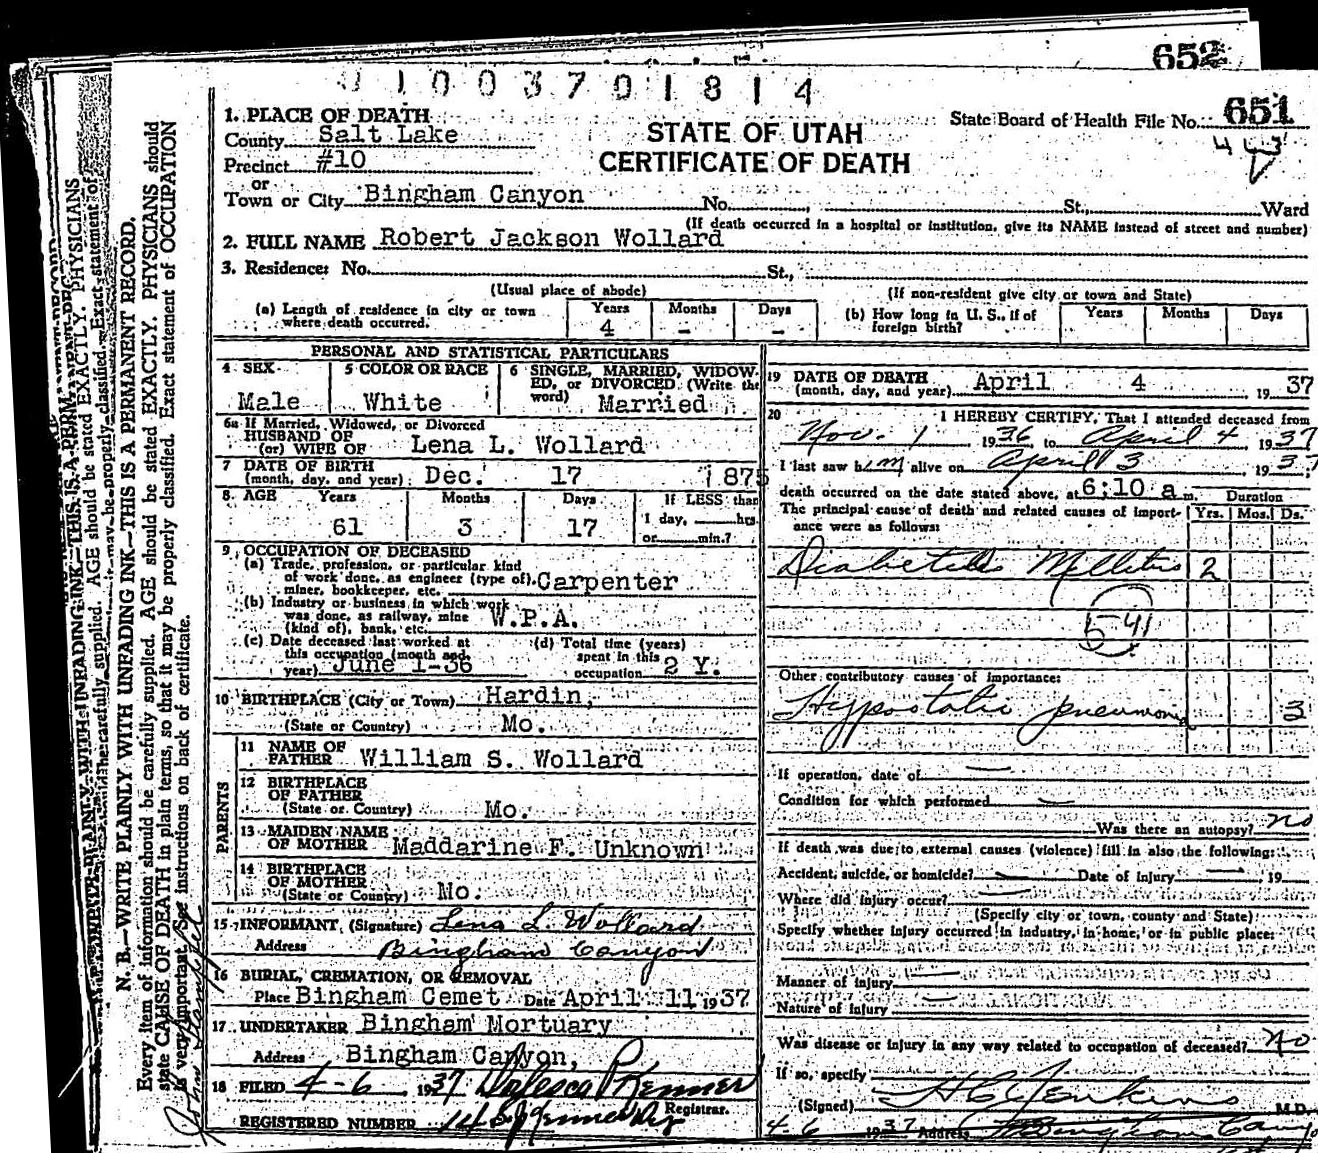 652
1003701814
1. PLACE OF DEATH
County Salt Lake
Precinct #10
or
Town or City Bingham Canyon No. St., Ward
STATE OF UTAH
CERTIFICATE OF DEATH
State Board of Health File No. 651
443
(If death occurred in a hospital or institution, give its NAME instead of street and number)
2. FULL NAME Robert Jackson Wollard
3. Residence: No. St.,
(Usual place of abode) (If non-resident give city or town and State)
(a) Length of residence in city or town where death occurred. Years 4 Months - Days -
(b) How long in U. S., if of foreign birth? Years Months Days
PERSONAL AND STATISTICAL PARTICULARS
4 SEX Male
5 COLOR OR RACE White
6 SINGLE, MARRIED, WIDOWED, or DIVORCED (Write the word) Married
6a If Married, Widowed, or Divorced
HUSBAND OF
(or) WIFE OF Lena L. Wollard
7 DATE OF BIRTH
(month, day, and year) Dec. 17 1875
8. AGE Years 61 Months 3 Days 17 If LESS than
1 day, hrs.
or min.?
9 OCCUPATION OF DECEASED
(a) Trade, profession, or particular kind
of work done, as engineer (type of), Carpenter
miner, bookkeeper, etc.
(b) Industry or business in which work
was done, as railway, mine W.P.A.
(kind of), bank, etc.
(c) Date deceased last worked at
this occupation (month and
year) June 1-36
(d) Total time (years)
spent in this
occupation 2 Y.
10 BIRTHPLACE (City or Town) Hardin,
(State or Country) Mo.
PARENTS
11 NAME OF
FATHER William S. Wollard
12 BIRTHPLACE
OF FATHER
(State or Country) Mo.
13 MAIDEN NAME
OF MOTHER Maddarine F. Unknown
14 BIRTHPLACE
OF MOTHER
(State or Country) Mo.
15 INFORMANT, (Signature) Lena L. Wollard
Address Bingham Canyon
16 BURIAL, CREMATION, OR REMOVAL
Place Bingham Cemet Date April 11 1937
17 UNDERTAKER Bingham Mortuary
Address Bingham Canyon,
18 FILED 4-6 1937
Registrar.
REGISTERED NUMBER 14
19 DATE OF DEATH
(month, day, and year) April 4 1937
20 I HEREBY CERTIFY, That I attended deceased from
Nov. 1 1936 to April 4 1937
I last saw him alive on April 3 1937
death occurred on the date stated above, at 6:10 a m. Duration
The principal cause of death and related causes of importance were as follows: Yrs. Mos. Ds.
Diabetes Mellitus 2
541
Other contributory causes of importance:
Hypostatic pneumonia 3
If operation, date of
Condition for which performed
Was there an autopsy? no
If death was due to external causes (violence) fill in also the following:
Accident, suicide, or homicide? Date of injury 19
Where did injury occur?
(Specify city or town, county and State)
Specify whether injury occurred in industry, in home, or in public place:
Manner of injury
Nature of injury
Was disease or injury in any way related to occupation of deceased? No
If so, specify
(Signed) H C Jenkins M.D.
4-6 1937 Address Bingham Canyon
N. B.—WRITE PLAINLY WITH UNFADING INK—THIS IS A PERMANENT RECORD.
Every item of information should be carefully supplied. AGE should be stated EXACTLY. PHYSICIANS should
state CAUSE OF DEATH in plain terms, so that it may be properly classified. Exact statement of OCCUPATION
is very important. See instructions on back of certificate.